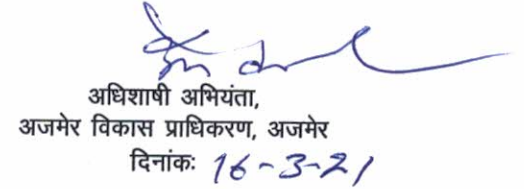 अधिशाषी अभियंता,
अजमेर विकास प्राधिकरण, अजमेर
दिनांकः 16-3-21